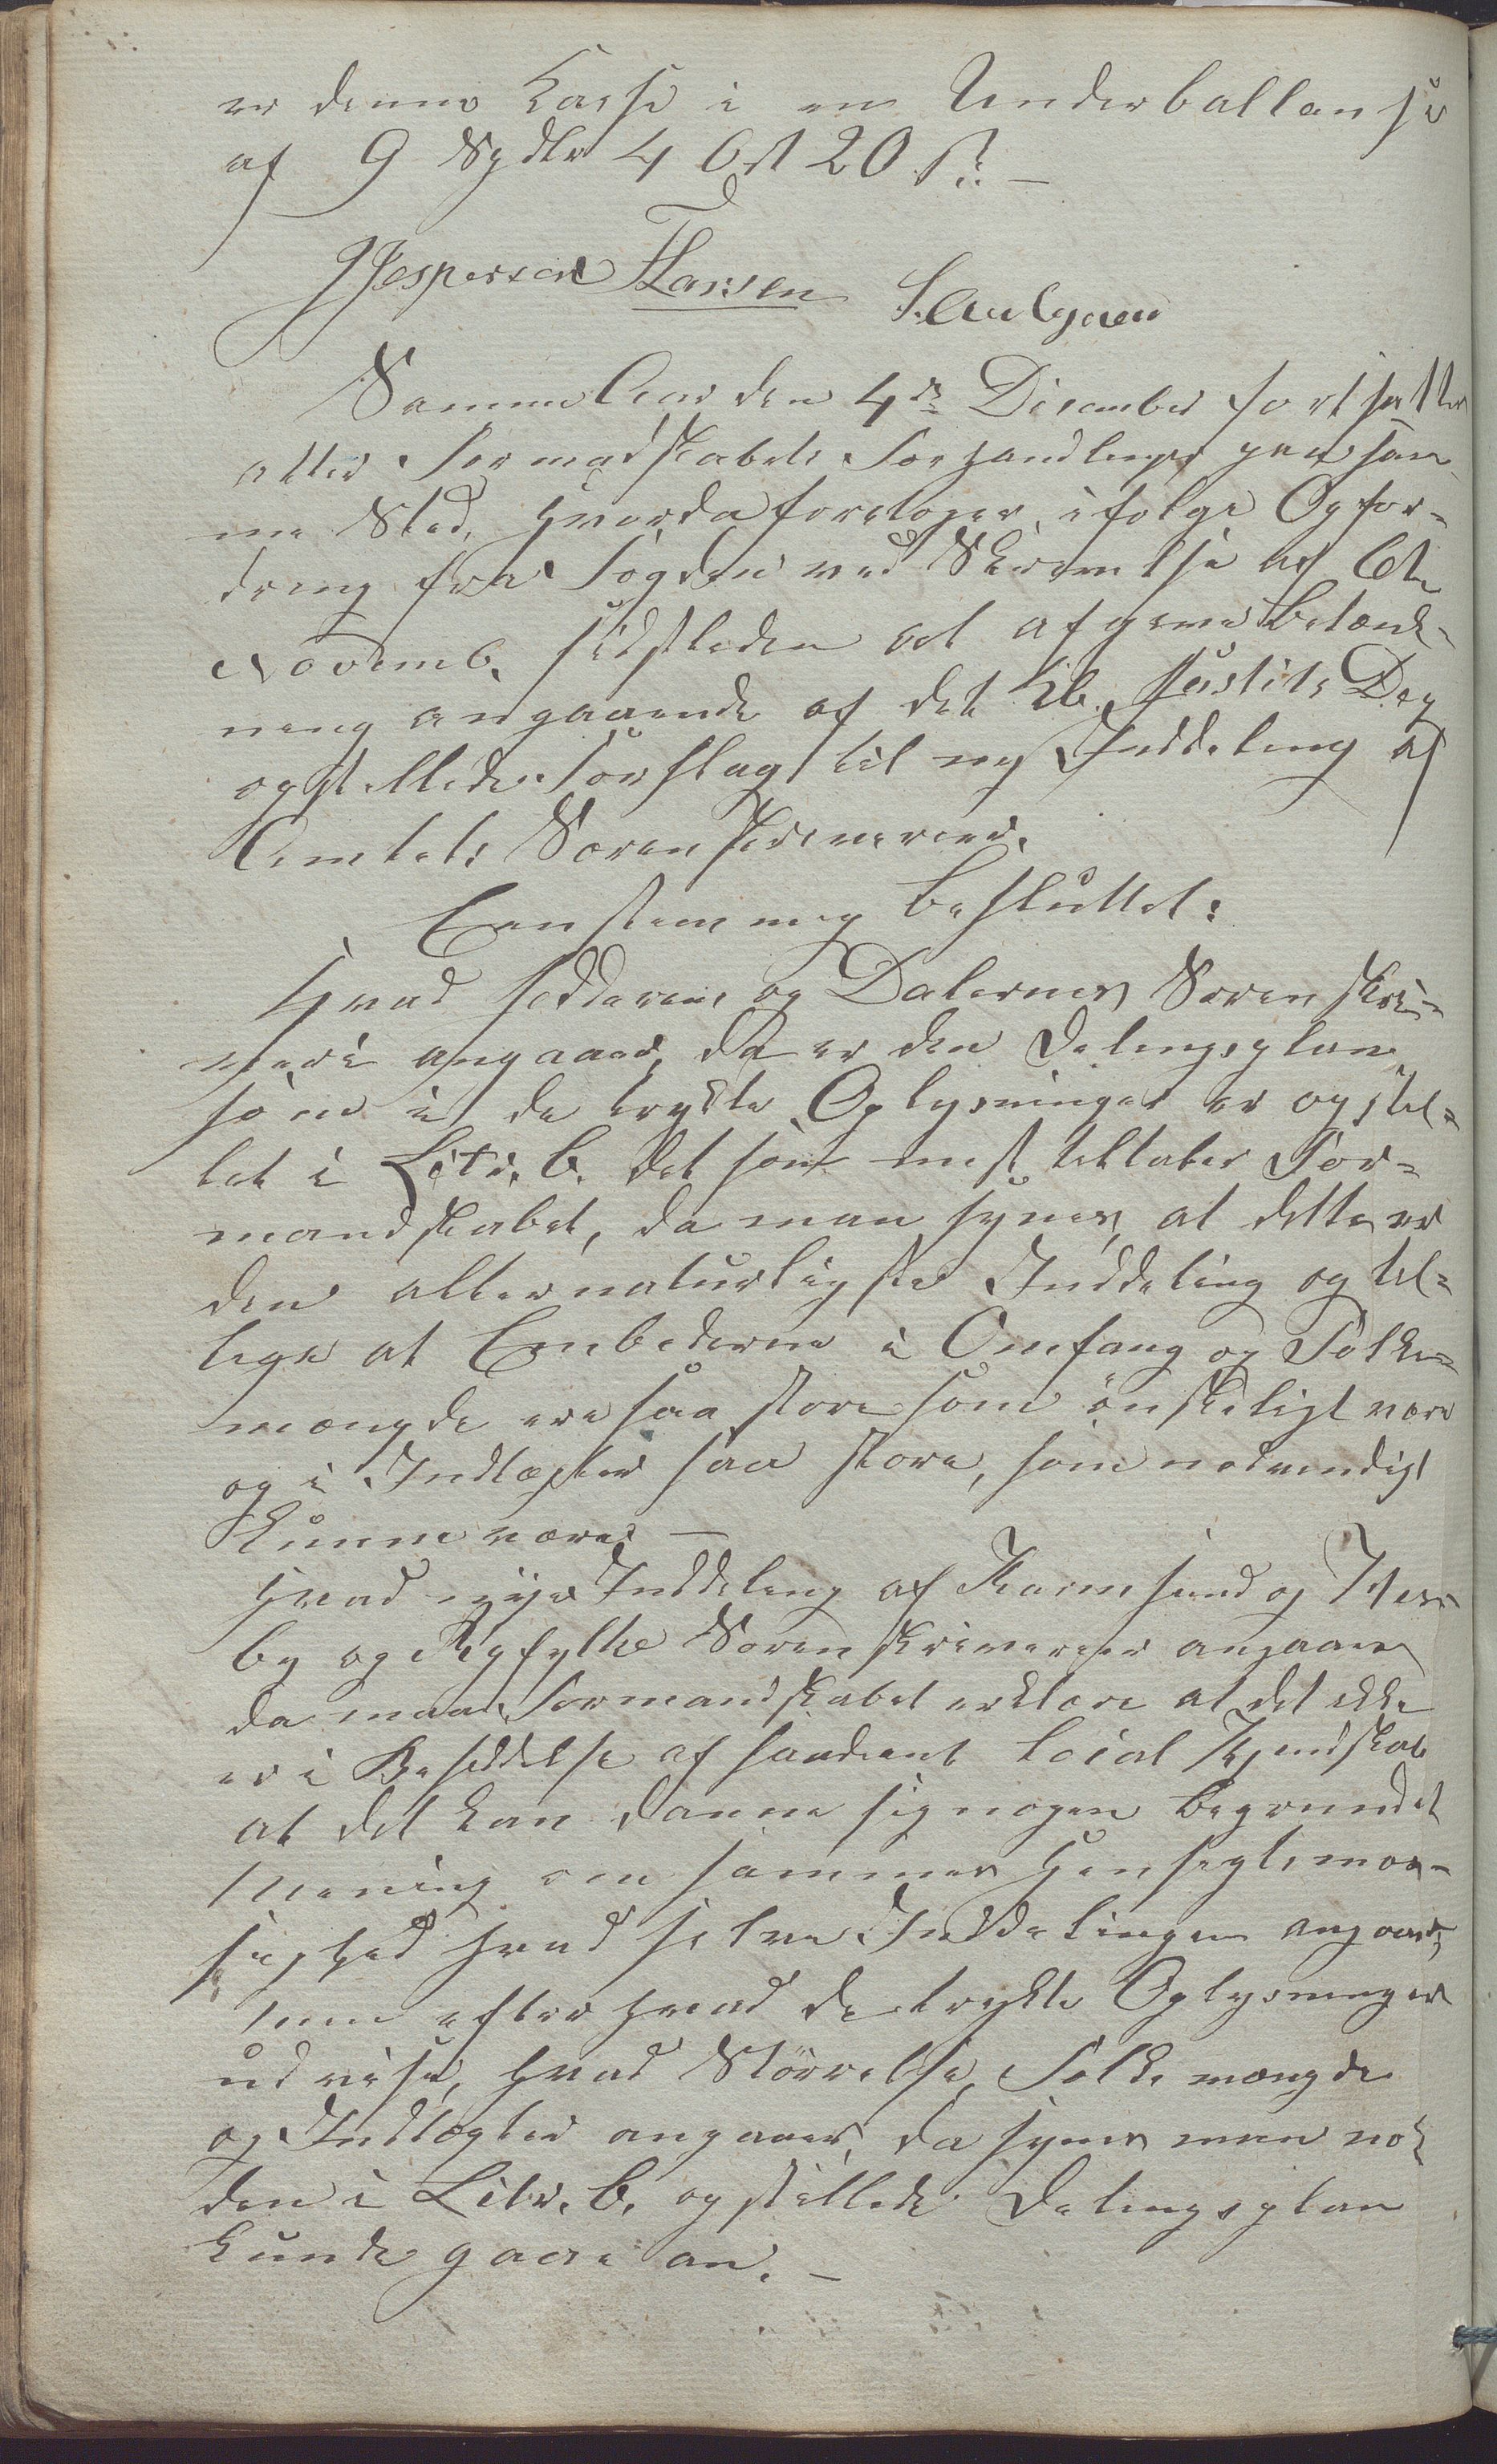 er denne Kasse i en Underballanse
af 9 Spdlr 4 Ort 20 ß. —
JJespersen THansen
Samme Aar den 4de December fortsatter
atter Formadskabets Forhandlinger paa sam
me Sted, hvorda foretoges, ifølge Opfor-
dring fra Fogden ved Skrivelse af 6te
Novemb. sidstleden at afgive Betænk-
ning angaaende af det Kb. Justits Dep
opstillede Forslag til ny Inddeling af
Amtets Sorenskriverier.
Eenstemmig besluttet:
Hvad Jedderens og Dalernes Sorenskri-
verie angaaer, da er den Delingsplan
som i de trykte Oplysninger er opstil-
let i Litr. C. det som mest tiltaler For-
mandskabet, da man synes, at dette er
den allernaturligste Inddeling og til-
lige at Embederne i Omfang og Folke-
mængde ere saa store som ønskeligt være
og i Indtægter saa store, som nødvendigt
kunne være —
Hvad nye Inddeling af Karmsund og Hes-
by og Ryfylke Sorenskriverier angaaer
da maa Formandskabet erklære at det ikke
er i Besiddelse af saadant Local Kjendskab
at det kan danne sig nogen begrundet
Mening om sammes Hensigtsmæs-
sighed hvad selve Inddelingen angaaer,
men efter hvad de trykte Oplysninger
udvise, hvad Størrelse, Folkemængde
og Indtægter angaaer, da synes man nok
den i Litr. C. opstillede Delingsplan
kunde gaae an. —